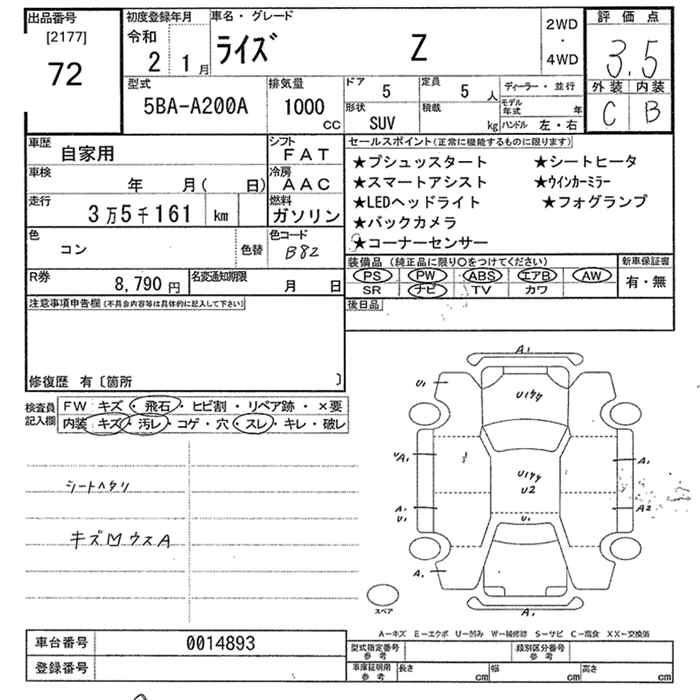 出品番号
[2177]
72
初度登録年月
令和
2 1月
車名・グレード
ライズ Z
2WD
・
4WD
評価点
3.5
外装 内装
C B
型式
5BA-A200A
排気量
1000
CC
ドア 5
定員 5 人
形状
SUV
積載
kg
ディーラー・並行
モデル
年式 年
ハンドル 左・右
車歴
自家用
シフト
FAT
車検
年 月( 日)
冷房
AAC
走行
3万5千161 km
燃料
ガソリン
色
コン
色替
色コード
B82
R券
8,790円
名変通知期限
月 日
セールスポイント(正常に機能するものに限ります)
★プシュッスタート ★シートヒータ
★スマートアシスト ★ウインカーミラー
★LEDヘッドライト ★フォグランプ
★バックカメラ
★コーナーセンサー
装備品(純正品に限り○をつけてください)
PS PW ABS エアB AW
SR ナビ TV カワ
新車保証書
有・無
後日品
注意事項申告欄(不具合内容等は具体的に記入して下さい)
修復歴 有〔箇所 〕
検査員
記入欄
FW キズ・飛石・ヒビ割・リペア跡・×要
内装 キズ・汚レ・コゲ・穴・スレ・キレ・破レ
シートヘタリ
キズM ウスA
A1
U1
U1
A1
A1
A1
U1
U2
U1
A2
A1
A1
スペア
A-キズ E-エクボ U-凹み W-補修跡 S-サビ C-腐食 XX-交換済
車台番号
0014893
登録番号
型式指定番号
参考
類別区分番号
参考
車庫証明用
参考
長さ cm
幅 cm
高さ cm